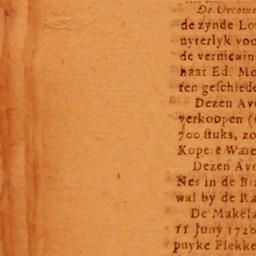 De Gecomm
de zynde Lo
uyterlyk voo
de verniewin
haar Ed. Mo
ten geschiede
Dezen Av
verkoopen (
700 stuks, zo
Kopere Ware
Dezen Avo
Nes in de B
wal by de Ra
De Makela
11 Juny 1720
puyke Flekke